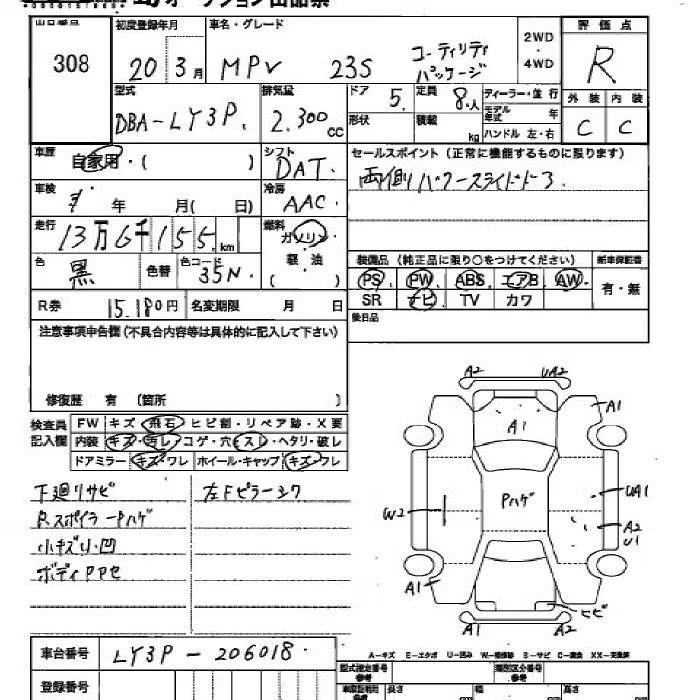 308
初度登録年月
車名・グレード
20 3月
MPV 23S
ユーティリティ
パッケージ
2WD
・
4WD
評価点
R
外装 内装
C C
型式
DBA-LY3P.
排気量
2.300cc
ドア 5.
定員 8.人
ディーラー・並行
形状
積載 kg
モデル年式 年
ハンドル 左・右
車歴
自家用・( )
シフト
DAT.
セールスポイント (正常に機能するものに限ります)
両側パワースライドドア.
車検
年 月( 日)
冷房
AAC.
走行
13万6千155.km
燃料
ガソリン
軽・油
( )
色
黒
色替
色コード
35N.
装備品 (純正品に限り○をつけてください)
新車保証書
PS PW ABS エアB AW
SR ナビ TV カワ
有・無
R券 15.180円
名変期限 月 日
後日品
注意事項申告欄(不具合内容等は具体的に記入して下さい)
修復歴 有 (箇所 )
検査員
記入欄
FW キズ・飛石・ヒビ割・リペア跡・X要
内装 キズ・汚レ・コゲ・穴・スレ・ヘタリ・破レ
ドアミラー キズ・ワレ ホイール・キャップ キズ・ワレ
下廻りサビ
Rスポイラ-Pハゲ
小キズ小凹
左Fピラーシワ
A2 UA2
A1
A1
Pハゲ
W2
UA1
A2
U1
A1
ヒビ
A1 A2
車台番号 LY3P-206018.
登録番号
型式指定番号
参考
類別区分番号
参考
長さ 幅 高さ